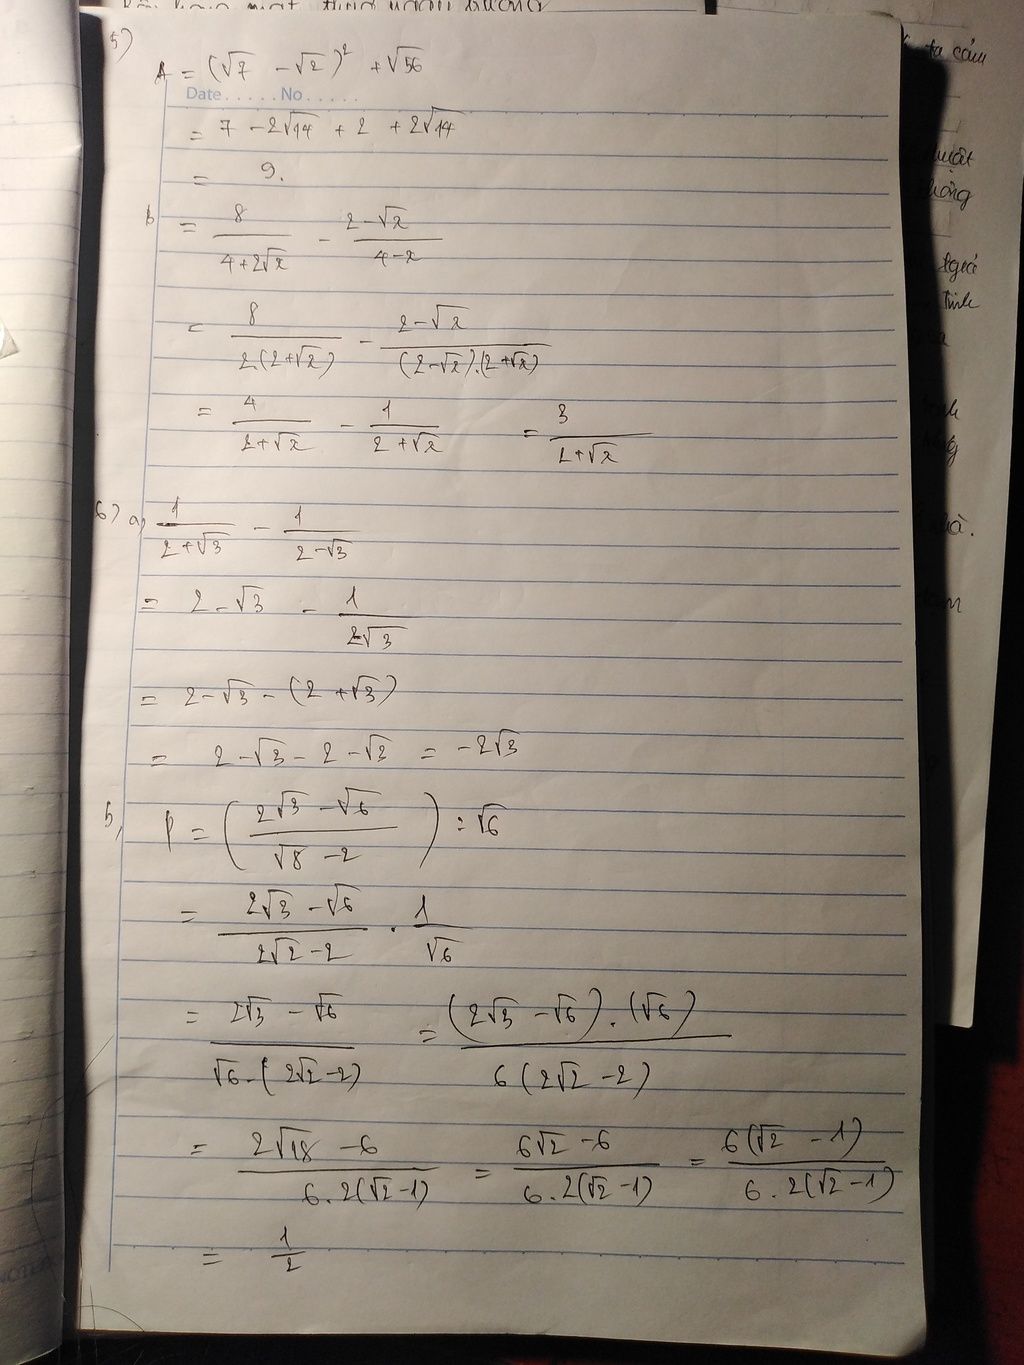 5)
A = (√7 - √2)² + √56
Date . . . . . No . . . . .
= 7 - 2√14 + 2 + 2√14
= 9.
b = 8/(4+2√x) - (2-√x)/(4-x)
= 8/(2.(2+√x)) - (2-√x)/((2-√x).(2+√x))
= 4/(2+√x) - 1/(2+√x) = 3/(2+√x)
6) a, 1/(2+√3) - 1/(2-√3)
= 2-√3 - 1/(2-√3)
= 2-√3 - (2+√3)
= 2-√3-2-√3 = -2√3
b, P = ((2√3-√6)/(√8-2)) : √6
= (2√3-√6)/(2√2-2) . 1/√6
= (2√3-√6)/(√6.(2√2-2)) = ((2√3-√6).(√6))/(6(2√2-2))
= (2√18-6)/(6.2(√2-1)) = (6√2-6)/(6.2(√2-1)) = (6(√2-1))/(6.2(√2-1))
= 1/2
ta cảm